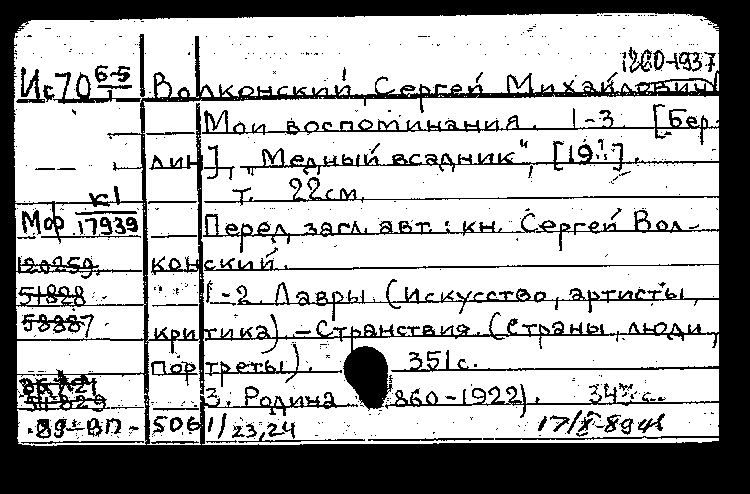 1860-1937
Ис70 6-5/1 Волконский, Сергей Михайлович
Мои воспоминания. 1-3. [Бер-
лин], "Медный всадник", [19??].
т. 22см.
к1
Мор 17939 Перед загл. авт.: кн. Сергей Вол-
120259 конский.
51828 1-2. Лавры (Искусство, артисты,
58887 критика). - Странствия. (Страны, люди,
портреты). 351с.
3. Родина 860-1922). 343с.
89-ВП-5061/23,24